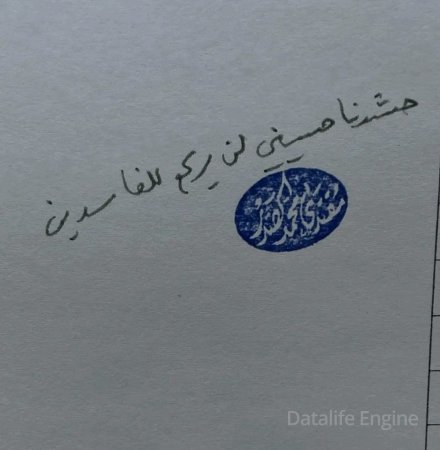 حشدنا حسيني لن يركع للفاسدين
مقتدى السيد محمد الصدر
Datalife Engine